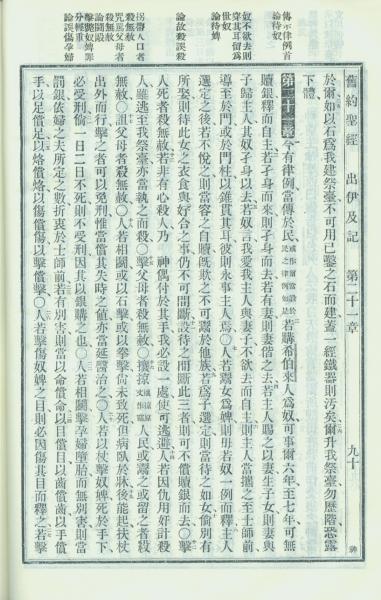 舊約聖經 出伊及記 第二十一章 九十
於爾如以石爲我建祭臺不可用已鑿之石而建蓋一經鐵器則污矣爾升我祭臺勿歷階恐露
下體
第二十一章 今有律例當傳於民
若購希伯來人爲奴可事爾六年至七年可無
贖銀釋而自主若孑身而來則孑身而去若有妻則妻偕之去若主人賜之以妻生子女則妻與
子歸主人其奴孑身以去若奴言我愛我主人與妻子不欲去而自主則主人當攜之至士師前
導至於門或於門柱以錐貫其耳彼則永事主人焉〇人若鬻女爲婢則毋若奴一例而釋主人
選定之後若不悅之則當容之自贖旣欺之不可鬻於他族若爲子選定則當待之如女倘別有
所娶則待此女之衣食與好合之事仍不可間斷設待之間斷此三者則可不償贖銀而去〇擊
人死者殺無赦若非有心殺人乃 神偶付於其手我必設一處使可逃避人若因仇用奸計殺
人雖逃至我祭臺亦當執而殺〇擊父母者殺無赦〇攘掠
人民或鬻之或留之者殺
無赦〇詛父母者殺無赦〇人若相鬭或以石擊或以拳擊尙未致死但病臥於牀後能起扶杖
出外而行擊之者可以免刑惟當償其失時之値亦當延醫治之〇人若以杖擊奴婢死於手下
必受刑倘一日二日不死則不受刑因其以銀購之也〇人若相鬭擊孕婦墮胎而無別害則當
罰銀依婦之夫所定之數折衷於士師前若有別害則當以命償命以目償目以齒償齒以手償
手以足償足以烙償烙以傷償傷以擊償擊〇人若擊傷奴婢之目則必因傷其目而釋之若擊
傳示律例首
論待奴
奴不欲去則
穿其耳留爲
世奴
論待婢
論故殺誤殺
拐掠人口者
殺無赦
咒罵父母者
殺無赦
論鬭毆
擊斃奴婢罪
分輕重
論誤傷孕婦